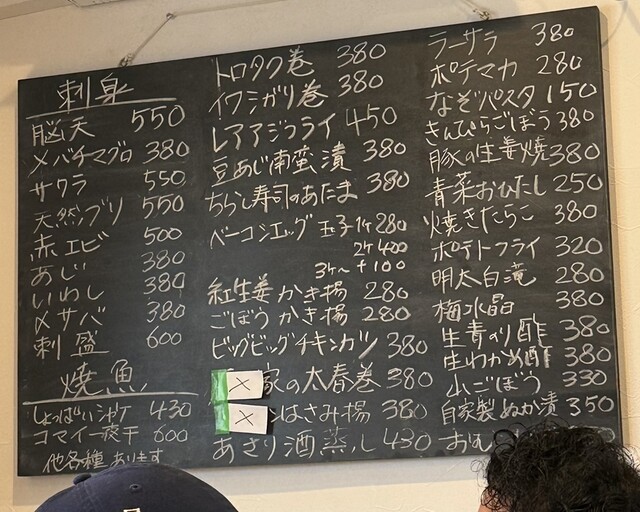 刺身
脳天 550
メバチマグロ 380
サワラ 550
天然ブリ 550
赤エビ 500
あじ 380
いわし 380
〆サバ 380
刺盛 600
焼魚
しょっぱいシャケ 430
コマイ一夜干 600
他各種あります
トロタク巻 380
イワシガリ巻 380
レアアジフライ 450
豆あじ南蛮漬 380
ちらし寿司のあたま 380
ベーコンエッグ 玉子1ケ 280
2ケ 400
3ケ〜 +100
紅生姜かき揚 280
ごぼうかき揚 280
ビッグビッグチキンカツ 380
× 家の大春巻 380
× はさみ揚 380
あさり酒蒸し 430
ラーサラ 380
ポテマカ 280
なぞパスタ 150
きんぴらごぼう 380
豚の生姜焼 380
青菜おひたし 250
焼きたらこ 380
ポテトフライ 320
明太白滝 280
梅水晶 380
生青のり酢 380
生わかめ酢 380
山ごぼう 330
自家製ぬか漬 350
おむ